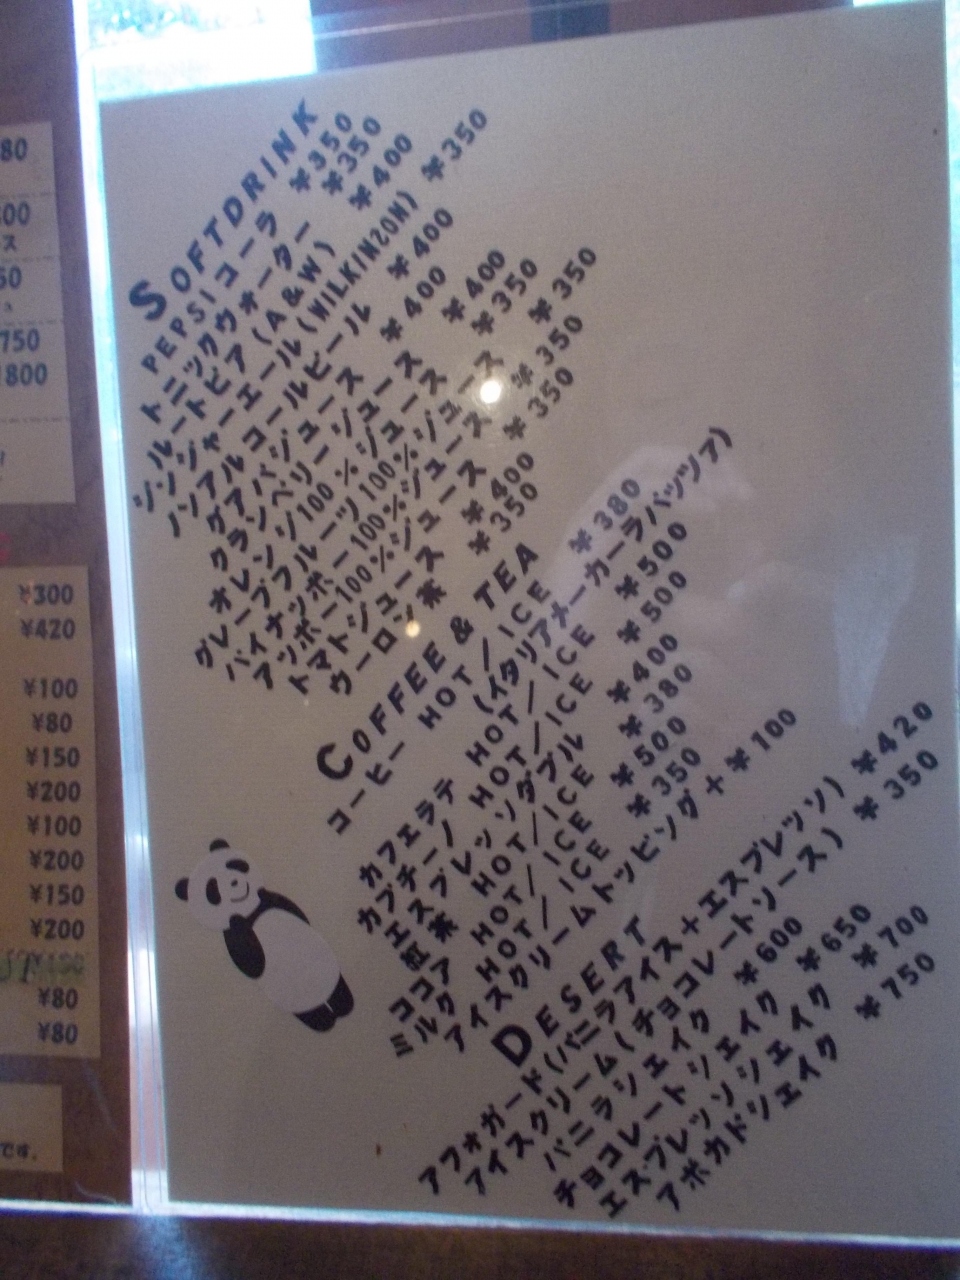 80
00
ス
50
750
1800
¥300
¥420
¥100
¥80
¥150
¥200
¥100
¥200
¥150
¥200
¥80
¥80
です。
SOFTDRINK
PEPSIコーラ ¥350
トニックウォーター ¥350
ルートビア(A&W) ¥400
ジンジャーエール(WILKINSON) ¥350
ノンアルコールビール ¥400
グアバジュース ¥400
クランベリージュース ¥400
オレンジ100%ジュース ¥350
グレープフルーツ100%ジュース ¥350
パイナッポー100%ジュース ¥350
アッポー100%ジュース ¥350
トマトジュース ¥400
ウーロン茶 ¥350
COFFEE & TEA
コーヒー HOT/ICE ¥380
(イタリアメーカーラバッツァ)
カフェラテ HOT/ICE ¥500
カプチーノ HOT/ICE ¥500
エスプレッソダブル ¥400
紅茶 HOT/ICE ¥380
ココア HOT/ICE ¥500
ミルク HOT/ICE ¥350
アイスクリームトッピング+¥100
DESERT
アフォガード(バニラアイス+エスプレッソ) ¥420
アイスクリーム(チョコレートソース) ¥350
バニラシェイク ¥600
チョコレートシェイク ¥650
エスプレッソシェイク ¥700
アボカドシェイク ¥750